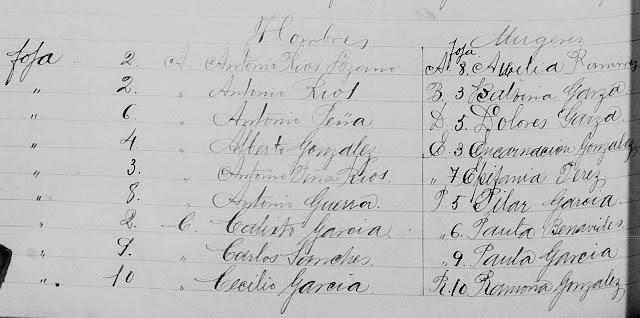 Hombres foja Mugeres
foja 2. A. Antonio Rios Lozano. A. 8. Aurelia Ramirez
" 2. Antonio Rios. B. 3 Balvina Garza
" 6. Antonio Peña D. 5. Dolores Garza
" 4 Alberto Gonzalez. E. 3 Encarnacion Gonzalez
" 3. Antonio Peña Rios. " 7 Epifania Perez
" 8. Antonio Guerra. P. 5 Pilar Garcia
" 2. C. Calixto Garcia " 6. Paula Benavides
" 9. Carlos Sanches. " 9. Paula Garcia
" 10 Cecilio Garcia R. 10 Ramona Gonzalez